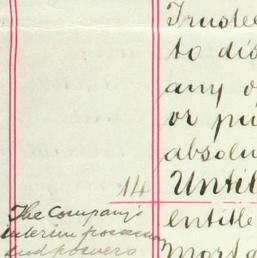 Trustee
to dis
any o
or pu
absolu
14 Until
The Company's
interim possession
and powers
entitle
Mortga